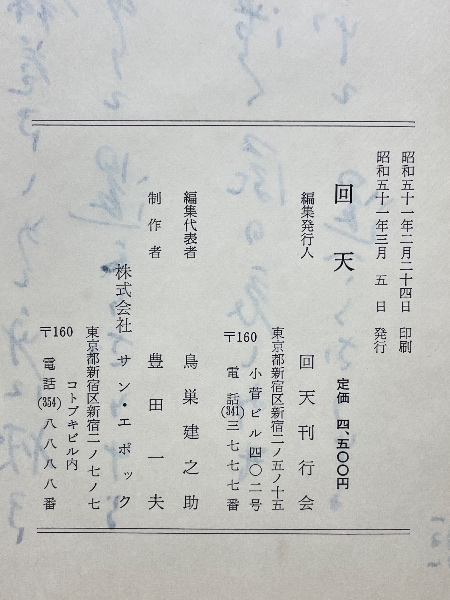 昭和五十一年二月二十四日 印刷
昭和五十一年三月 五 日 発行
回 天 定価 四、五〇〇円
編集発行人 回天刊行会
東京都新宿区新宿二ノ五ノ十五
小菅ビル四〇二号
〒160 電話(341)三七七七番
編集代表者 鳥巣建之助
制作者 豊田一夫
株式会社 サン・エポック
東京都新宿区新宿二ノ七ノ七
コトブキビル内
〒160 電話(354)八八八八番